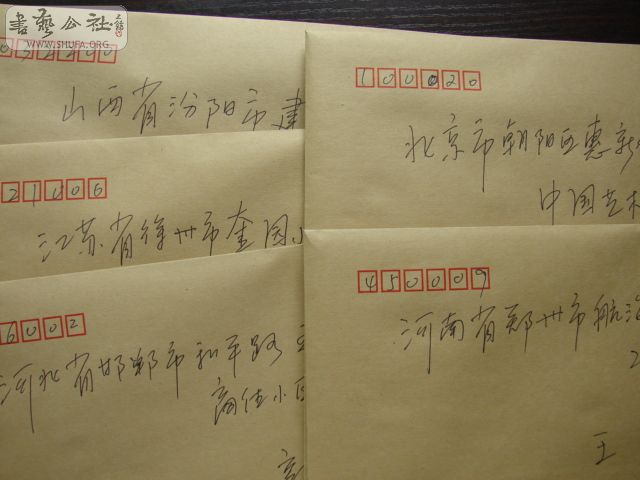 書藝公社
WWW.SHUFA.ORG
032200
山西省汾阳市建
21006
江苏省徐州市奎园小
6002
河北省邯郸市和平路
商住小区
100020
北京市朝阳区惠新
中国艺术
450009
河南省郑州市航海
王